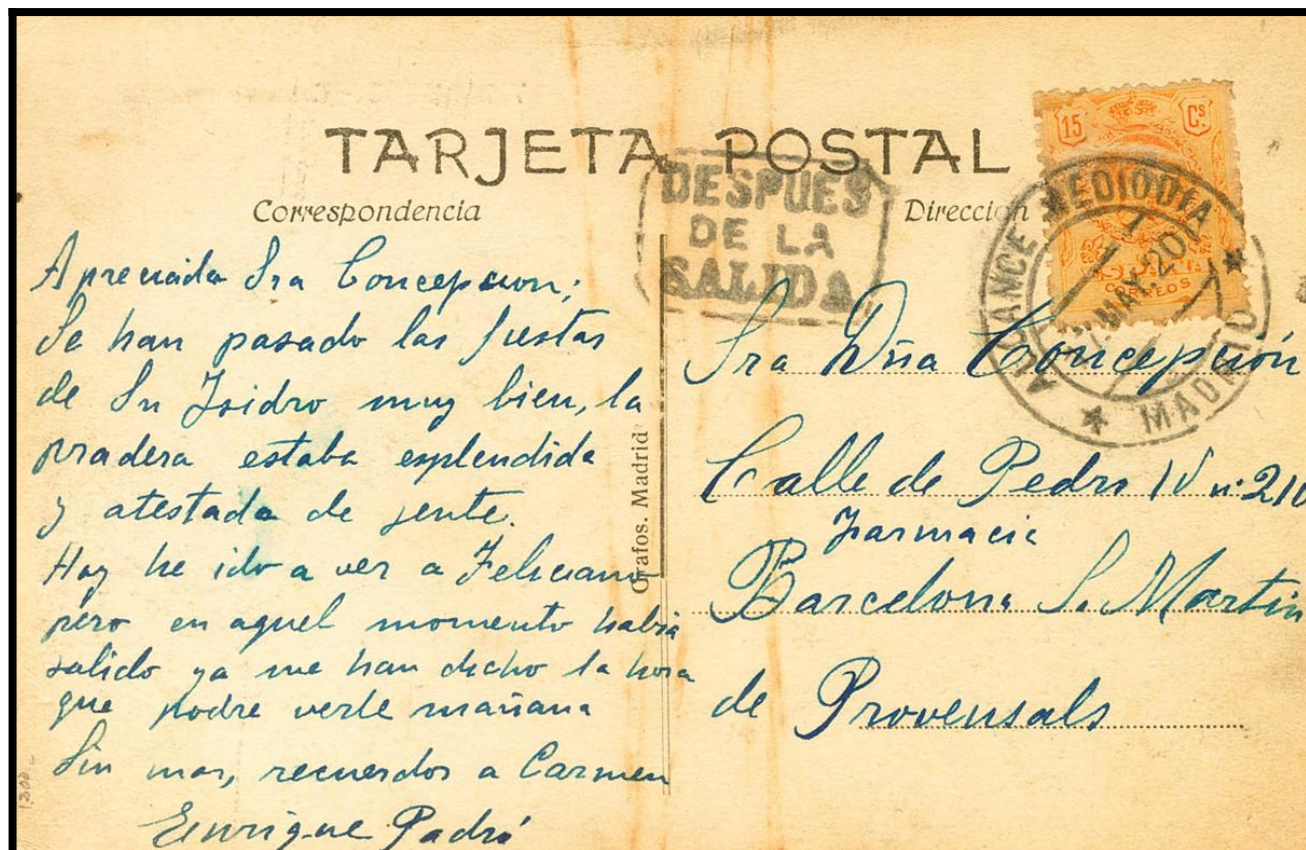 TARJETA POSTAL
Correspondencia
Dirección
DESPUES
DE LA
SALIDA
15 Cs.
CORREOS
ALCANCE MEDIODIA
MAY. 20
* MADRID *
Apreciada Sra Concepcion;
Se han pasado las fiestas
de Sn Isidro muy bien, la
pradera estaba esplendida
y atestada de gente.
Hoy he ido a ver a Feliciano
pero en aquel momento habia
salido ya me han dicho la hora
que podre verle mañana
Sin mas, recuerdos a Carmen
Enrique Padró
Grafos. Madrid
Sra Dña Concepción
Calle de Pedro IV nº 210
Farmacia
Barcelona S. Martin
de Provensals